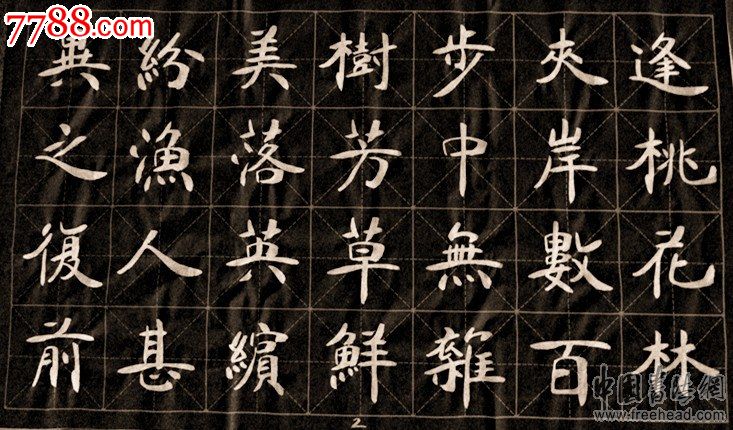 7788.com
逢桃花林
夾岸數百
步中無雜
樹芳草鮮
美落英繽
紛漁人甚
異之復前
2
中国書法網
www.freehead.com